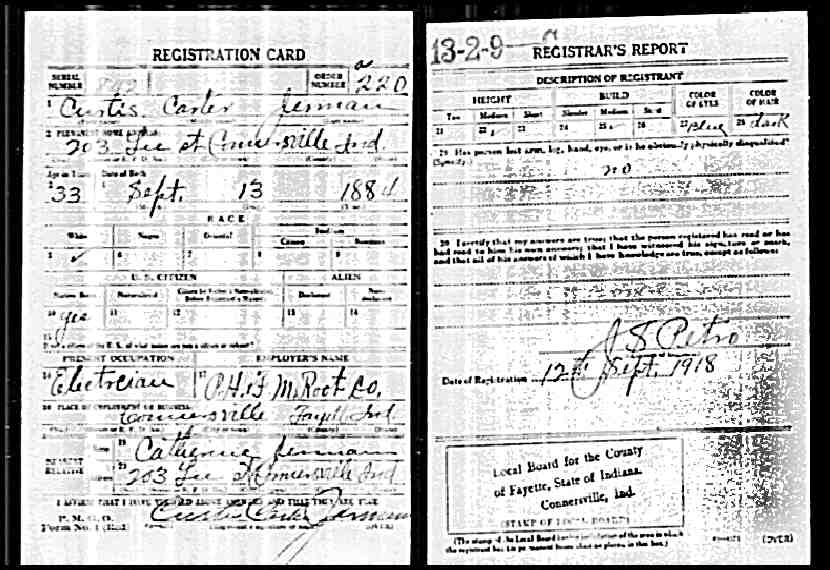 REGISTRATION CARD
SERIAL NUMBER 892 ORDER NUMBER 220
1 Curtis Carter Jerman
2 PERMANENT HOME ADDRESS
203 St Connersville Ind.
Age in Years Date of Birth
33 Sept. 13 188
RACE
White Negro Oriental
5 ✓ 6 7 8 9
U. S. CITIZEN ALIEN
Native Born Naturalized Declarant
10 yes 11 12 13 14
15
PRESENT OCCUPATION EMPLOYER'S NAME
16 Electrician 17 P.H. & F. M. Root Co.
18 PLACE OF EMPLOYMENT OR BUSINESS
Connersville Ind
NEAREST RELATIVE
19 Catherine Jerman
20 203 St Connersville Ind
I AFFIRM THAT I HAVE VERIFIED ABOVE ANSWERS AND THAT THEY ARE TRUE
P. M. G. O.
Form No. 1 (Red)
Curtis Carter Jerman
13-2-9- C
REGISTRAR'S REPORT
DESCRIPTION OF REGISTRANT
HEIGHT BUILD COLOR OF EYES COLOR OF HAIR
Tall Medium Short Slender Medium Stout
21 22 23 24 25 26 27 Blue 28 dark
29 Has person lost arm, leg, hand, eye, or is he obviously physically disqualified?
(Specify.)
no
30 I certify that my answers are true; that the person registered has read or has
had read to him his own answers; that I have witnessed his signature or mark,
and that all of his answers of which I have knowledge are true, except as follows:
J S Petro
Date of Registration 12th Sept. 1918
Local Board for the County
of Fayette, State of Indiana.
Connersville, Ind.
(STAMP OF LOCAL BOARD)
(The stamp of the Local Board having jurisdiction of the area in which
the registrant has his permanent home shall be placed in this box.)
(OVER)